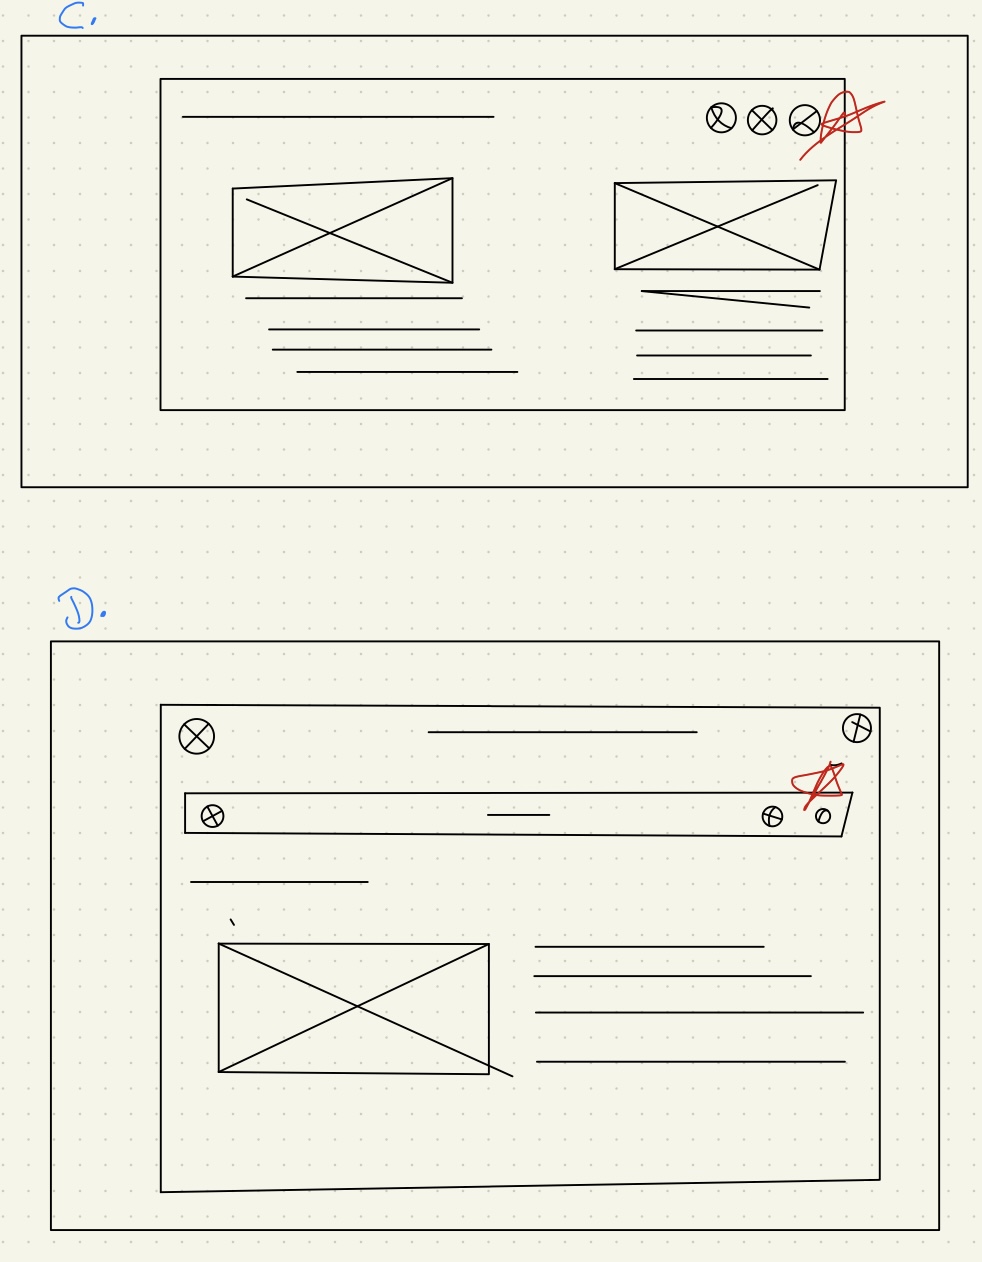 C.
D.